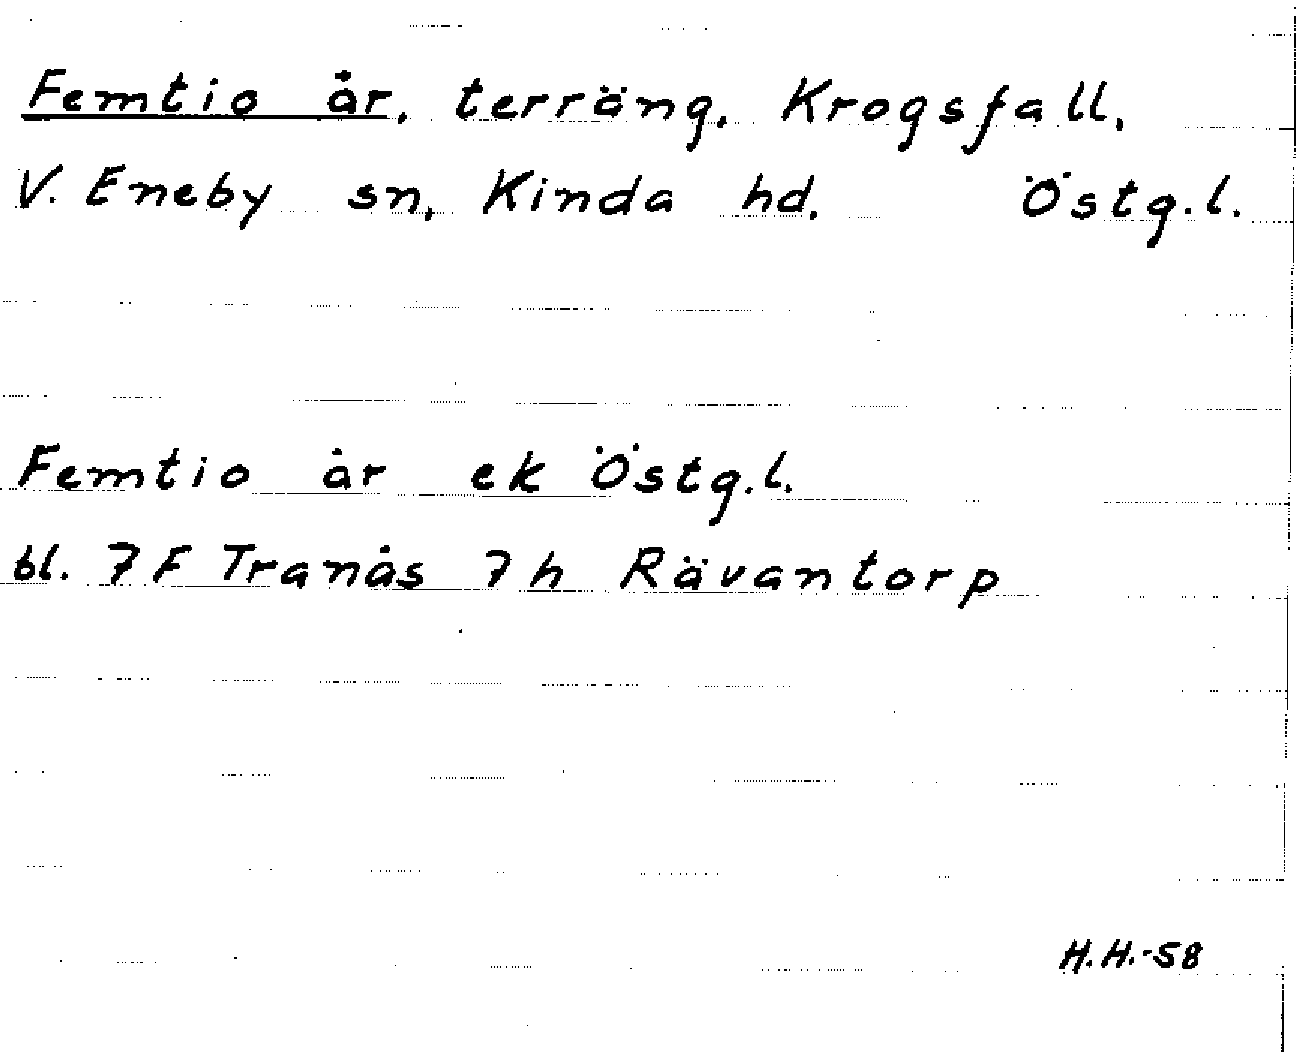 Femtio år, terräng, Krogsfall,
V. Eneby sn, Kinda hd. Östg.l.
Femtio år ek Östg.l.
bl. 7F Tranås 7h Rävantorp
H.H.-58